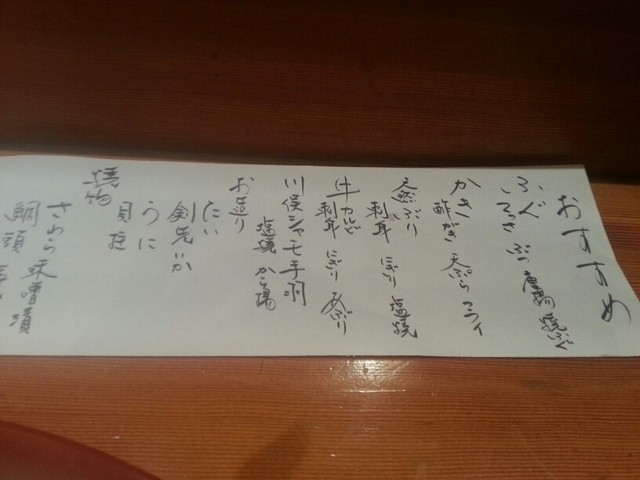 おすすめ
ふぐ
てっさ ぶつ 唐揚 焼ふぐ
かき
酢がき 天ぷら フライ
天然ぶり
刺身 にぎり 塩焼
牛カルビ
刺身 にぎり あぶり
川俣シャモ手羽
塩焼 から揚
お造り
たい
剣先いか
うに
貝柱
焼物
さわら味噌漬
鯛頭